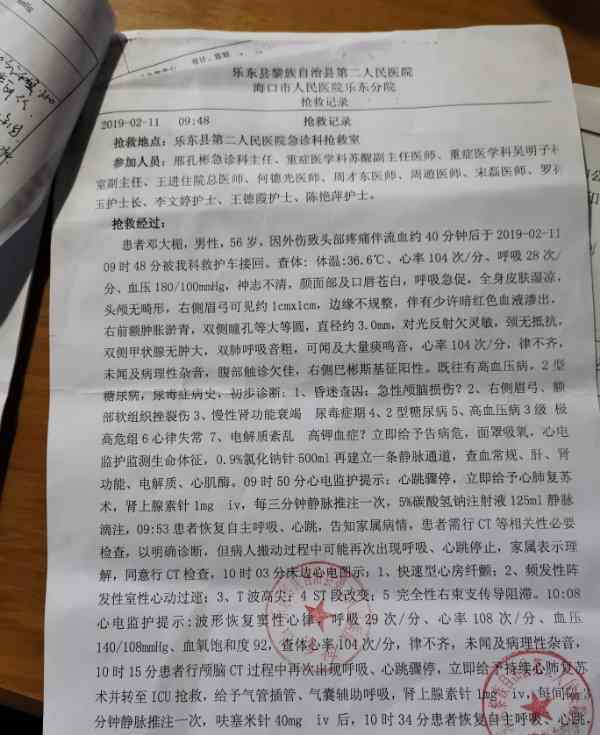 乐东县黎族自治县第二人民医院
海口市人民医院乐东分院
抢救记录
2019-02-11 09:48 抢救记录
抢救地点：乐东县第二人民医院急诊科抢救室
参加人员：邢孔彬急诊科主任、重症医学科苏醒副主任医师、重症医学科吴明子
室副主任、王进住院总医师、何德光医师、周才东医师、周通医师、宋磊医师、罗
玉护士长、李文婷护士、王德霞护士、陈艳萍护士。
抢救经过：
患者邓大棍，男性，56岁，因外伤致头部疼痛伴流血约40分钟后于2019-02-11
09时48分被我科救护车接回。查体：体温:36.6℃、心率104次/分、呼吸28次/
分、血压180/100mmHg，神志不清，颜面部及口唇苍白，呼吸急促，全身皮肤湿凉，
头颅无畸形，右侧眉弓可见约1cmx1cm，边缘不规整，伴有少许暗红色血液渗出，
右前额肿胀淤青，双侧瞳孔等大等圆，直径约3.0mm，对光反射欠灵敏，颈无抵抗，
双侧甲状腺无肿大，双肺呼吸音粗，可闻及大量痰鸣音，心率104次/分，律不齐，
未闻及病理性杂音，腹部触诊欠佳，右侧巴彬斯基征阳性。既往有高血压病，2型
糖尿病，尿毒症病史，初步诊断：1、昏迷查因：急性颅脑损伤？2、右侧眉弓、额
部软组织挫裂伤3、慢性肾功能衰竭 尿毒症期4、2型糖尿病5、高血压病3级 极
高危组6心律失常 7、电解质紊乱 高钾血症？立即给予告病危，面罩吸氧，心电
监护监测生命体征，0.9%氯化钠针500ml再建立一条静脉通道，查血常规、肝、肾
功能、电解质、心肌酶。09时50分心电监护提示：心跳骤停，立即给予心肺复苏
术，肾上腺素针1mg iv，每三分钟静脉推注一次，5%碳酸氢钠注射液125ml静脉
滴注，09:53患者恢复自主呼吸、心跳，告知家属病情，患者需行CT等相关性必要
检查，以明确诊断，但病人搬动过程中可能再次出现呼吸、心跳停止，家属表示理
解，同意行CT检查，10时03分床边心电图示：1、快速型心房纤颤；2、频发性阵
发性室性心动过速；3、T波高尖；4 ST段改变；5 完全性右束支传导阻滞。10:08
心电监护提示：波形恢复窦性心律，呼吸29次/分、心率108次/分、血压
140/108mmHg、血氧饱和度92，查体心率104次/分，律不齐，未闻及病理性杂音，
10时15分患者行颅脑CT过程中再次出现呼吸、心跳骤停，立即给予持续心肺复苏
术并转至ICU抢救，给予气管插管、气囊辅助呼吸，肾上腺素针1mg iv，每间隔3
分钟静脉推注一次，呋塞米针40mg iv后，10时34分患者恢复自主呼吸、心跳，